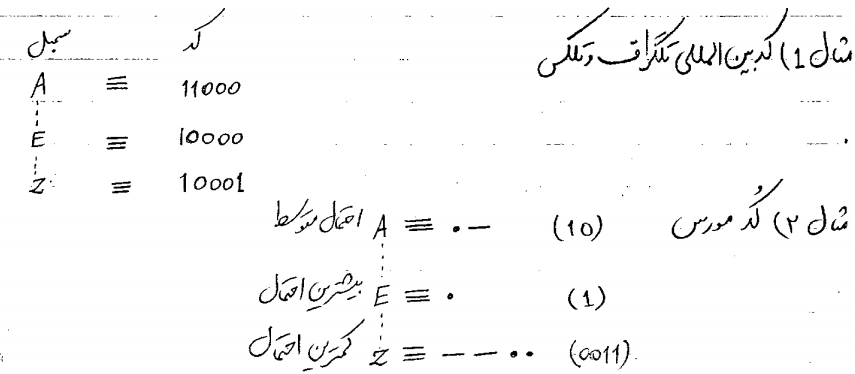 مثال 1) کد بین المللی تلگراف و تلکس
سمبل کد
A ≡ 11000
E ≡ 10000
Z ≡ 10001
مثال ۲) کُد مورس
احتمال متوسط A ≡ • — (10)
بیشترین احتمال E ≡ • (1)
کمترین احتمال Z ≡ — — • • (0011)